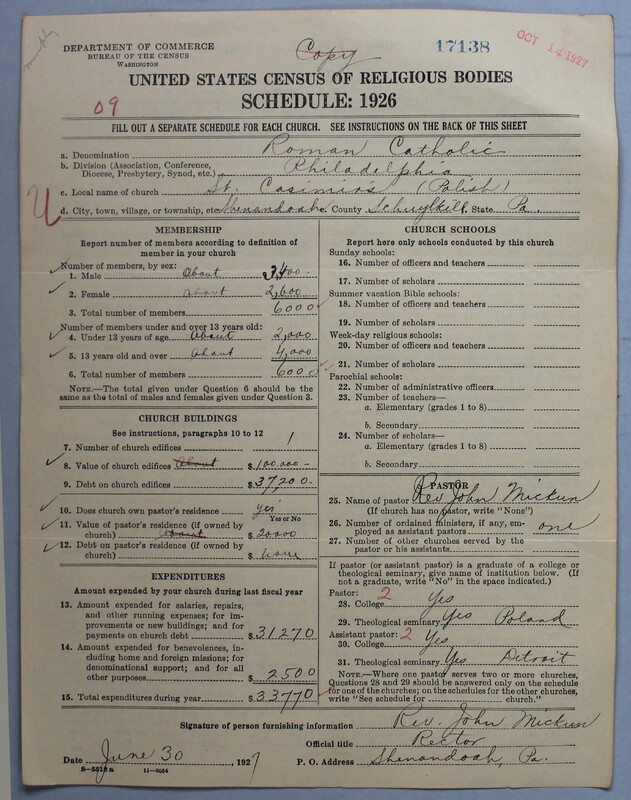 DEPARTMENT OF COMMERCE
BUREAU OF THE CENSUS
WASHINGTON
Copy
17138
OCT 14 1927
UNITED STATES CENSUS OF RELIGIOUS BODIES
SCHEDULE: 1926
09
FILL OUT A SEPARATE SCHEDULE FOR EACH CHURCH. SEE INSTRUCTIONS ON THE BACK OF THIS SHEET
a. Denomination Roman Catholic
b. Division (Association, Conference, Diocese, Presbytery, Synod, etc.) Philadelphia
c. Local name of church St. Casimirs (Polish)
U
d. City, town, village, or township, etc. Shenandoah County Schuylkill State Pa.
MEMBERSHIP
Report number of members according to definition of
member in your church
Number of members, by sex:
1. Male About 3,400-
2. Female About 2,600
3. Total number of members 6000
Number of members under and over 13 years old:
4. Under 13 years of age About 2,000
5. 13 years old and over About 4,000
6. Total number of members 6000
NOTE.—The total given under Question 6 should be the
same as the total of males and females given under Question 3.
CHURCH BUILDINGS
See instructions, paragraphs 10 to 12
7. Number of church edifices 1
8. Value of church edifices About $ 100.000-
9. Debt on church edifices $ 37200-
10. Does church own pastor's residence? yes
Yes or No
11. Value of pastor's residence (if owned by
church) About $ 20000
12. Debt on pastor's residence (if owned by
church) $ none
EXPENDITURES
Amount expended by your church during last fiscal year
13. Amount expended for salaries, repairs,
and other running expenses; for im-
provements or new buildings; and for
payments on church debt $ 31270
14. Amount expended for benevolences, in-
cluding home and foreign missions; for
denominational support; and for all
other purposes $ 2500
15. Total expenditures during year $ 33770
CHURCH SCHOOLS
Report here only schools conducted by this church
Sunday schools:
16. Number of officers and teachers
17. Number of scholars
Summer vacation Bible schools:
18. Number of officers and teachers
19. Number of scholars
Week-day religious schools:
20. Number of officers and teachers
21. Number of scholars
Parochial schools:
22. Number of administrative officers
23. Number of teachers—
a. Elementary (grades 1 to 8)
b. Secondary
24. Number of scholars—
a. Elementary (grades 1 to 8)
b. Secondary
PASTOR
25. Name of pastor Rev. John Mickun
(If church has no pastor, write "None")
26. Number of ordained ministers, if any, em-
ployed as assistant pastors one
27. Number of other churches served by the
pastor or his assistants
If pastor (or assistant pastor) is a graduate of a college or
theological seminary, give name of institution below. (If
not a graduate, write "No" in the space indicated.)
Pastor: 2
28. College Yes
29. Theological seminary Yes Poland
Assistant pastor: 2
30. College Yes
31. Theological seminary Yes Detroit
NOTE.—Where one pastor serves two or more churches,
Questions 28 and 29 should be answered only on the schedule
for one of the churches; on the schedules for the other churches,
write "See schedule for church."
Signature of person furnishing information Rev. John Mickun
Official title Rector
Date June 30, 1927 P. O. Address Shenandoah, Pa.
8-5513a 11-9034